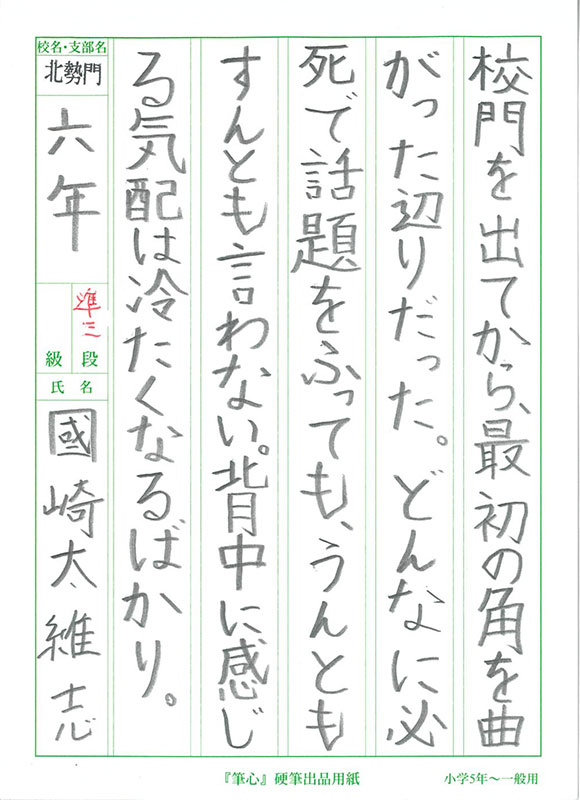 校門を出てから、最初の角を曲
がった辺りだった。どんなに必
死で話題をふっても、うんとも
すんとも言わない。背中に感じ
る気配は冷たくなるばかり。
校名・支部名
北勢門
六年
準三
段
級
氏名
國崎太維志
『筆心』硬筆出品用紙
小学5年〜一般用